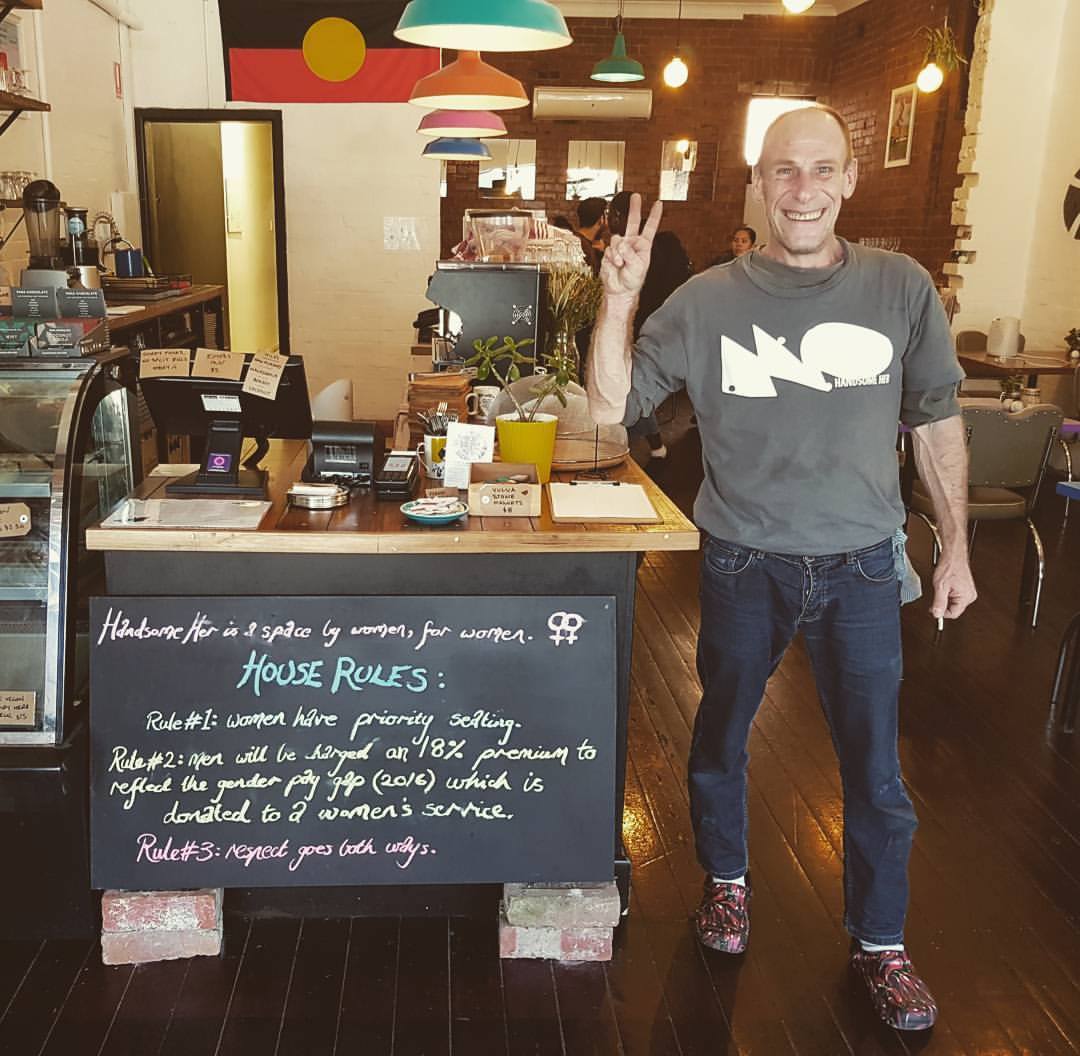 NO
HANDSOME HER
VULVA
STONE
MAGNETS
$8
Handsome Her is a space by women, for women.
HOUSE RULES:
Rule #1: women have priority seating.
Rule #2: men will be charged an 18% premium to
reflect the gender pay gap (2016) which is
donated to a women's service.
Rule #3: respect goes both ways.